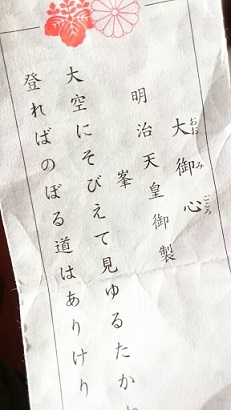 大御心
おおみごころ
明治天皇御製
峯
大空にそびえて見ゆるたか
登ればのぼる道はありけり